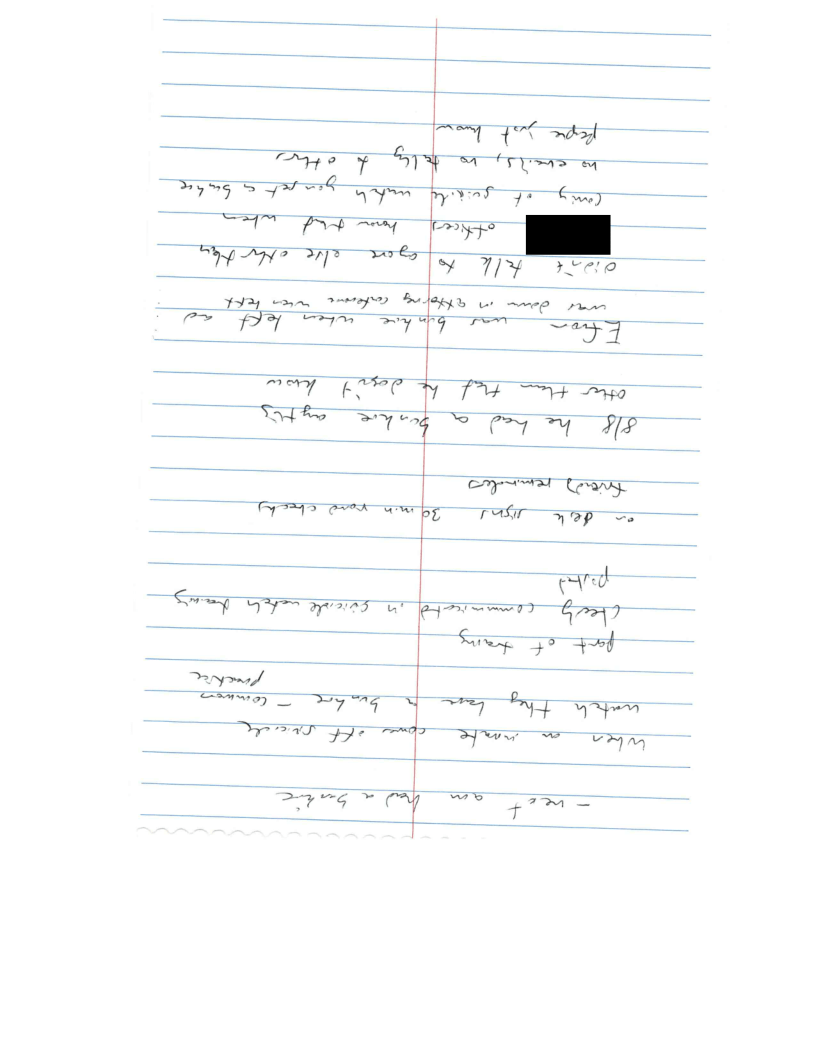 - next am had a bunkie
When an inmate comes off suicide
watch they have a bunkie - common
practice
part of training
Clearly communicated in suicide watch training
posted
on desk signs 30 min round checks
friendly reminders
8/8 he had a bunkie
other than that he doesn't know
Efron was bunkie when left and
was down in attorney conference when left
Didn't talk to anyone else other than
officers know that when
coming of suicide watch you get a bunkie
no emails, no talking to others
people just know